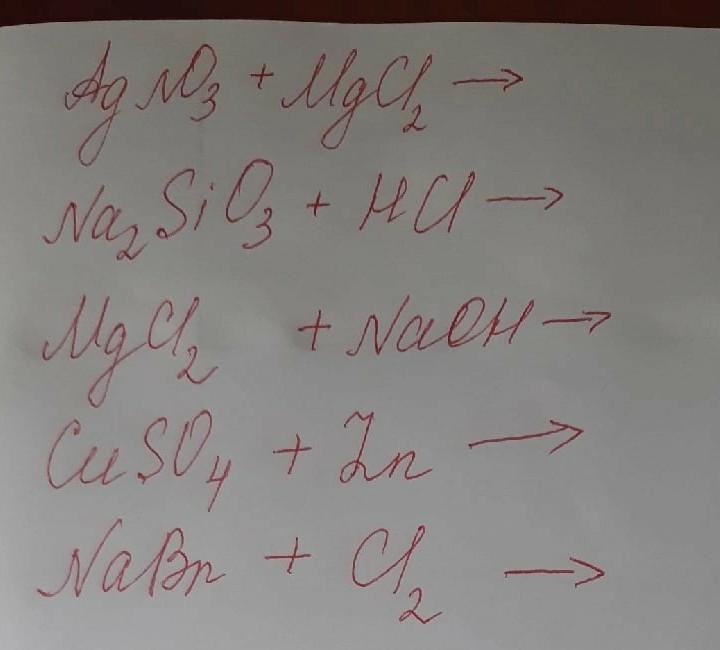 AgNO₃ + MgCl₂ →
Na₂SiO₃ + HCl →
MgCl₂ + NaOH →
CuSO₄ + Zn →
NaBr + Cl₂ →